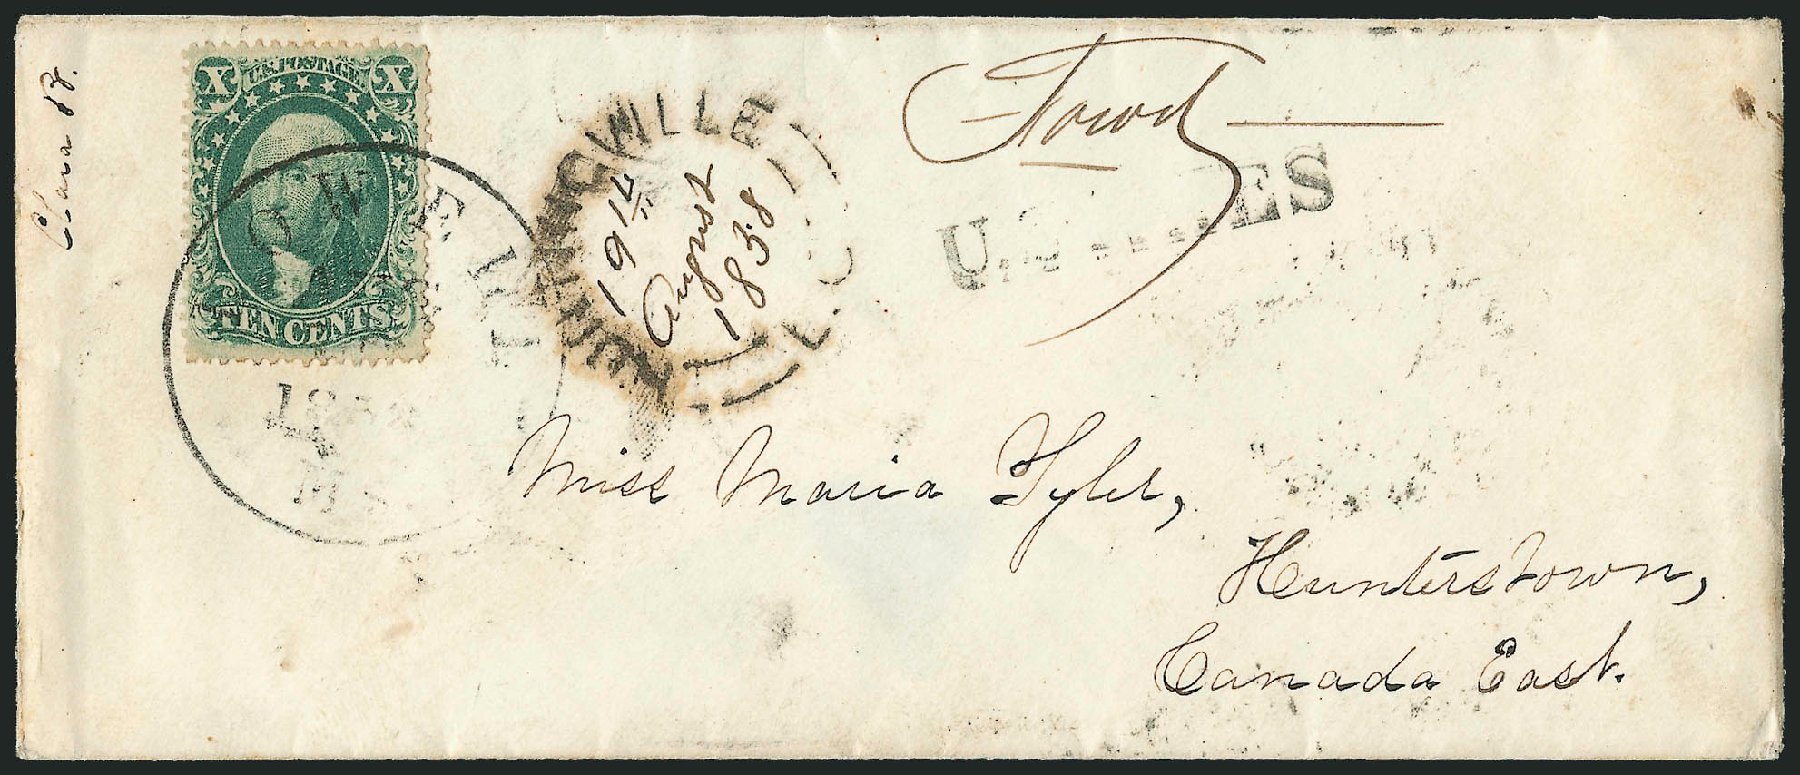 Clara B.
X U.S. POSTAGE X
TEN CENTS
LOWELL
VILLE
L. C.
19th
August
1858
Towd
U. S
ES
Miss Maria Tyler,
Hunterstown,
Canada East.